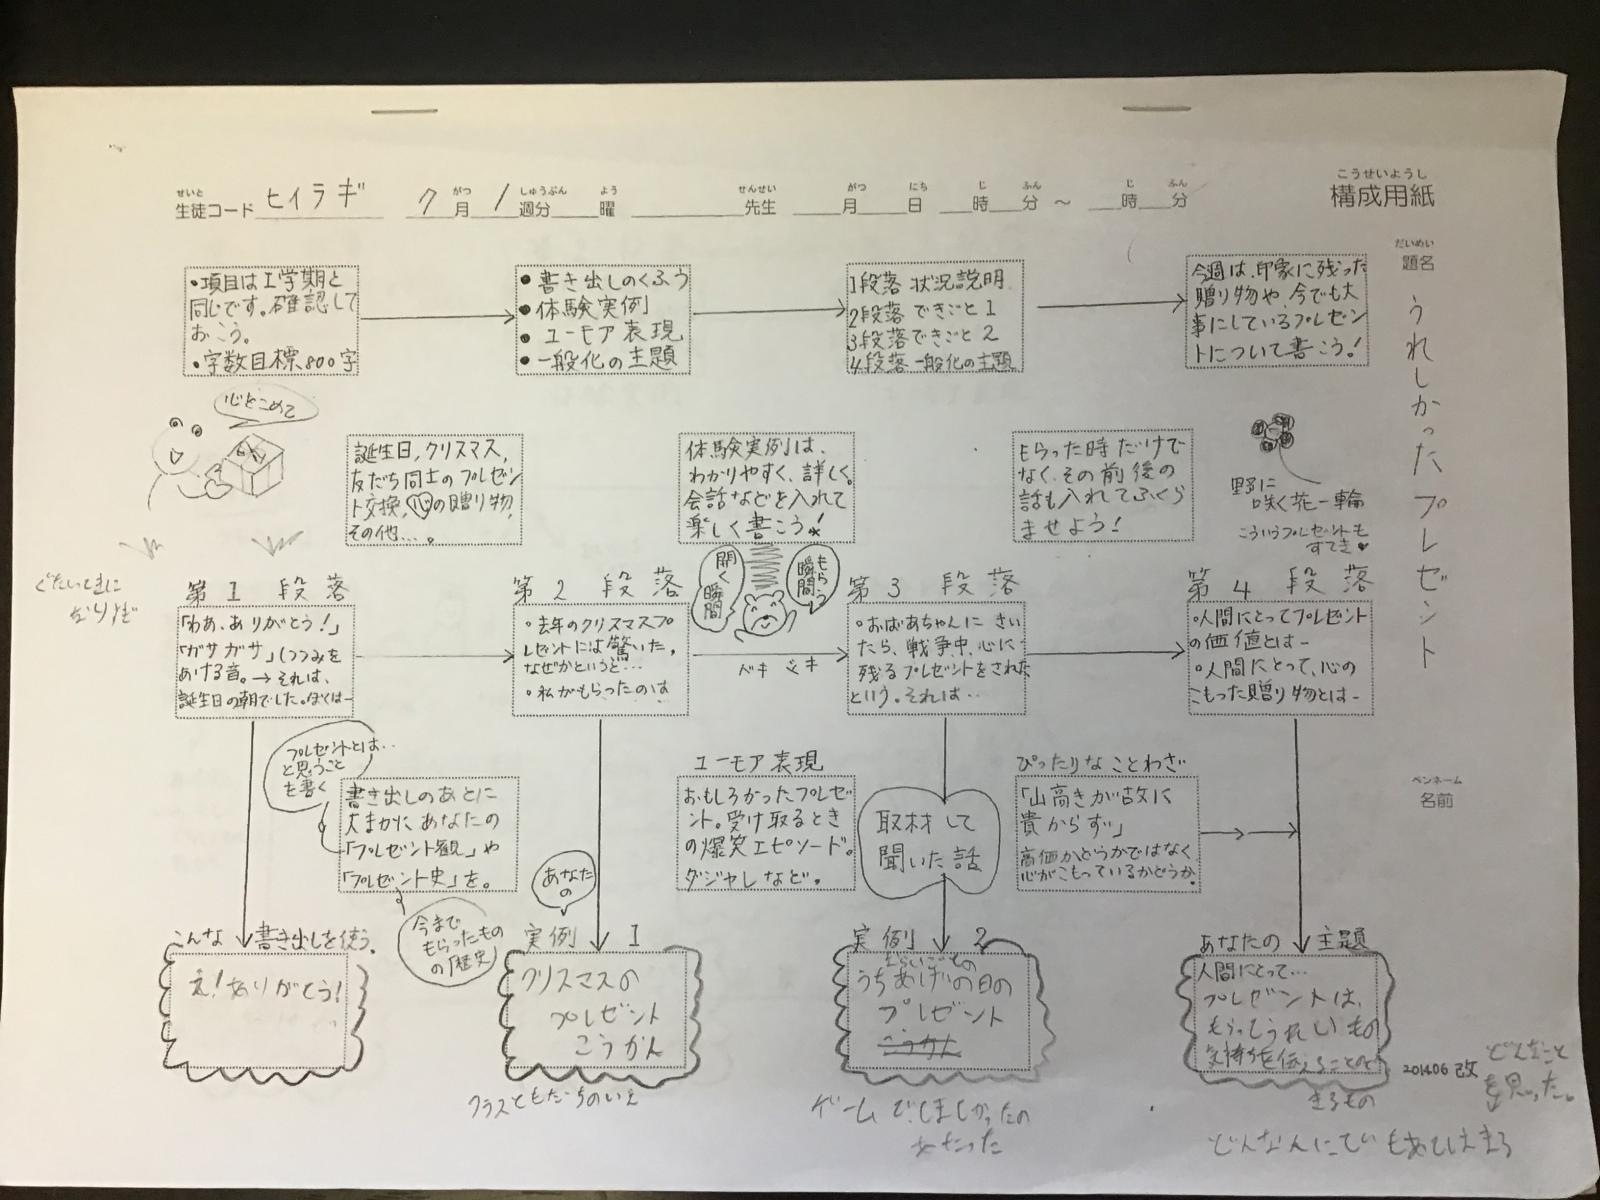 こうせいようし
構成用紙
せいと がつ しゅうぶん よう せんせい がつ にち じ ふん じ ふん
生徒コード ヒイラギ 7月 1週分 曜 先生 月 日 時 分 ～ 時 分
だいめい
題名
うれしかったプレゼント
ペンネーム
名前
・項目は1学期と
同じです。確認して
おこう。
・字数目標800字
●書き出しのくふう
●体験実例
●ユーモア表現
●一般化の主題
1段落 状況説明
2段落 できごと1
3段落 できごと2
4段落 一般化の主題
今週は、印象に残った
贈り物や、今でも大
事にしているプレゼン
トについて書こう!
心をこめて
誕生日,クリスマス,
友だち同士のプレゼン
ト交換,心の贈り物,
その他…。
体験実例は、
わかりやすく、詳しく。
会話などを入れて
楽しく書こう!
もらった時だけで
なく、その前後の
話も入れてふくら
ませよう!
野に
咲く花一輪
こういうプレゼントも
すてき♥
ぐたいてきに
第1段落
「わあ、ありがとう!」
「ガサガサ」(つつみを
あける音。→それは、
誕生日の朝でした。ぼくは―
第2段落
・去年のクリスマスプ
レゼントには驚いた。
なぜかというと…
・私がもらったのは
開く瞬間
もらう瞬間
ベキ ベキ
第3段落
・おばあちゃんにきい
たら、戦争中、心に
残るプレゼントをされた
という。それは…
第4段落
・人間にとってプレゼント
の価値とは―
・人間にとって、心の
こもった贈り物とは―
プレゼントとは…
と思うこと
を書く
書き出しのあとに
大まかに あなたの
「プレゼント観」や
「プレゼント史」を。
今まで
もらったもの
の「歴史」
ユーモア表現
おもしろかったプレゼ
ント。受け取るとき
の爆笑エピソード。
ダジャレなど。
取材して
聞いた話
ぴったりなことわざ
「山高きが故に
貴からず」
高価かどうかではなく
心がこもっているかどうか。
こんな 書き出しを使う。
え!ありがとう!
あなたの
実例 1
クリスマスの
プレゼント
こうかん
クラスともだちのいえ
実例 2
うちあげの日の
プレゼント
こうかん
あなたの 主題
人間にとって…
プレゼントは、
もらってうれしいもの
気持ちを伝えることので
きるもの
201406改
どんなこと
を思った。